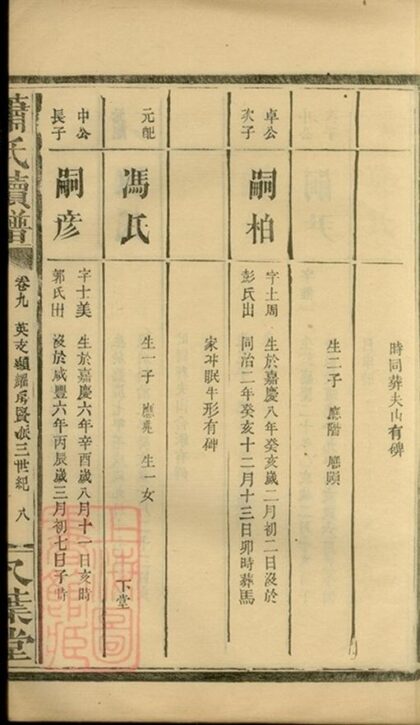 時同葬夫山有碑
生二子 應階 應頤
卓公
次子
嗣柏
字土周 生於嘉慶八年癸亥歲二月初二日沒於
彭氏出 同治二年癸亥十二月十三日卯時葬馬
家冲眠牛形有碑
元配
馮氏
生一子 應堯 生一女
下堂
中公
長子
嗣彦
字士美 生於嘉慶六年辛酉歲八月十一日亥時
郭氏出 沒於咸豐六年丙辰歲三月初七日子時
蕭氏續譜
卷九 英支顯耀房賢派三世紀 八
乂葉堂